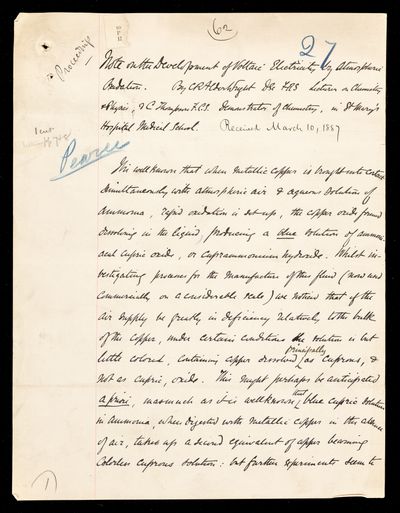 (62)
27
Proceedings
Note on the Development of Voltaic Electricity by Atmospheric
Oxidation. By C R A Wright DSc FRS Lecturer on Chemistry
& Physics, & C. Thompson F.C.S. Demonstrator of Chemistry, in St Mary's
Hospital Medical School. Received March 10, 1887
It is well known that when metallic copper is brought into contact
simultaneously with atmospheric air & aqueous solution of
ammonia, rapid oxidation is set-up, the copper oxide formed
dissolving in the liquid, producing a blue solution of ammoni-
acal cupric oxide, or cuprammonium hydroxide. Whilst in-
vestigating processes for the manufacture of this fluid (now used
commercially on a considerable scale) we noticed that if the
air supply be greatly in deficiency relatively to the bulk
of the copper, under certain conditions the solution is but
little colored, containing copper dissolved principally as cuprous, &
not as cupric, oxide. This might perhaps be anticipated
a priori, inasmuch as it is well known that blue cupric solution
in Ammonia, when digested with metallic copper in the absence
of air, takes up a second equivalent of copper becoming
colorless cuprous solution: but further experiments seem to
1)